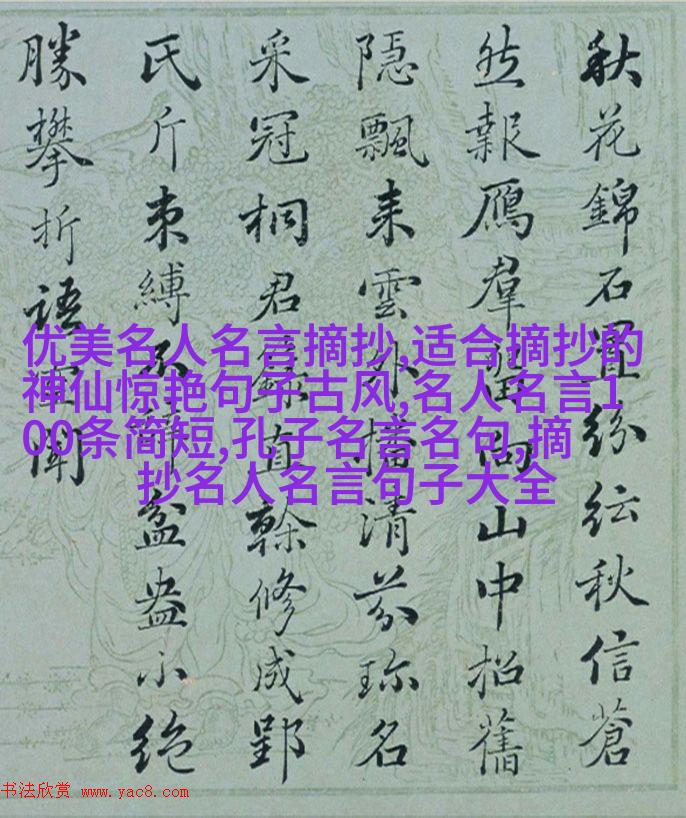 秋花錦石紛紜秋信蒼
然報鴈羣山中招舊
隱飄来雲外播清芬珎名
采冠桐君錄直榦修成郢
氏斤束縛不辭盆盎小絶
勝攀折語空聞
优美名人名言摘抄,适合摘抄的
神仙惊艳句子古风,名人名言1
00条简短,孔子名言名句,摘
抄名人名言句子大全
书法欣赏 www.yac8.com